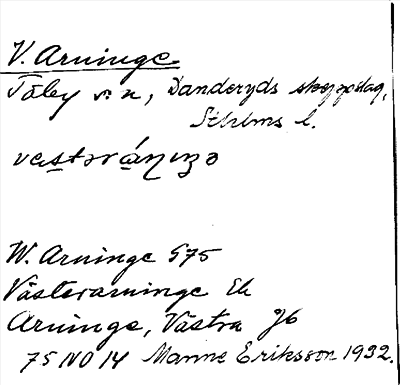 V. Arninge
Täby sn, Danderyds skeppslag,
Sthlms l.
västərániŋə
W. Arninge S75
Västerarninge Ek
Arninge, Västra Jb
75 NO 14 Manne Eriksson 1932.